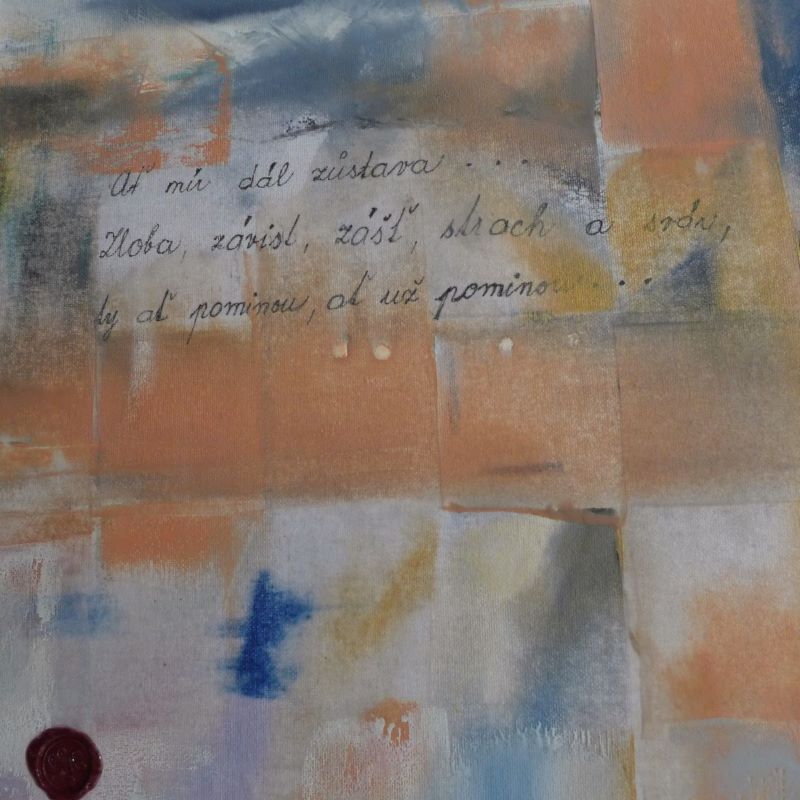 Ať mír dál zůstava . . .
Zloba, závist, zášť, strach a svár,
ty ať pominou, ať už pominou . . .